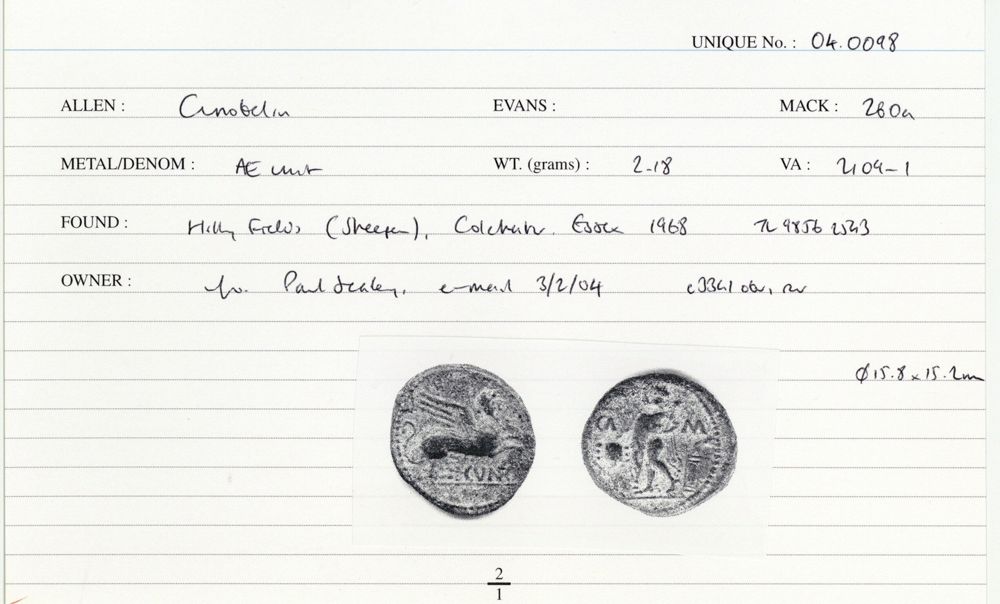 UNIQUE No. : 04.0098
ALLEN : Cunobelin EVANS : MACK : 260a
METAL/DENOM : AE unit WT. (grams) : 2.18 VA : 2109-1
FOUND : Hilly Fields (Sheepen), Colchester. Essex 1968 TL 9856 2543
OWNER : Paul Sealey, e-mail 3/2/04 obv, rev
ø15.8 x 15.2mm
CA M
CUN
2
1